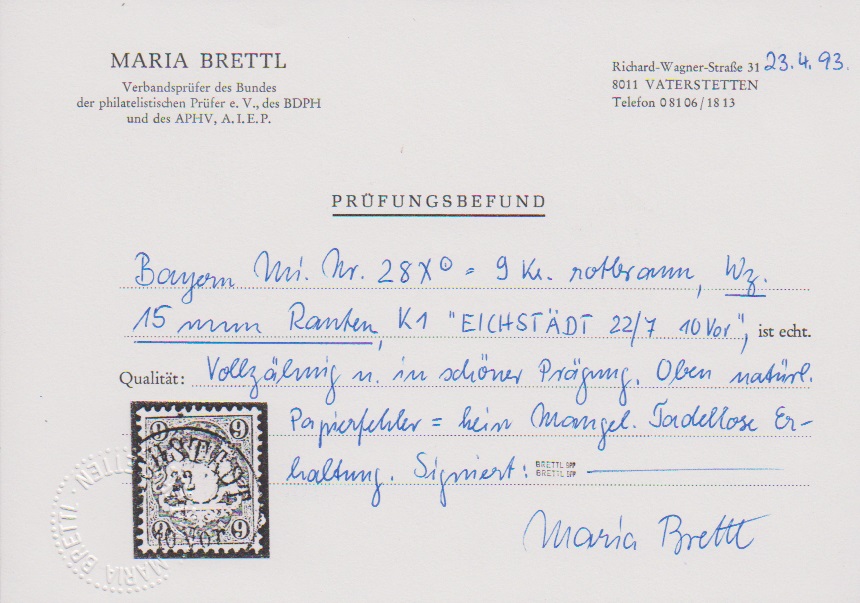 MARIA BRETTL
Verbandsprüfer des Bundes
der philatelistischen Prüfer e. V., des BDPH
und des APHV, A. I. E. P.
Richard-Wagner-Straße 31 23.4.93.
8011 VATERSTETTEN
Telefon 0 81 06 / 18 13
PRÜFUNGSBEFUND
Bayern Mi. Nr. 28X⊙ = 9 Kr. rotbraun, Wz.
15 mm Rauten, K1 "EICHSTÄDT 22/7 10 Vor", ist echt.
Qualität: Vollzähnig u. in schöner Prägung. Oben natürl.
Papierfehler = kein Mangel. Tadellose Er-
haltung. Signiert: BRETTL BPP
BRETTL BPP
Maria Brettl
9 9
EICHSTÄDT
22
10 Vor
9 9
MARIA BRETTL